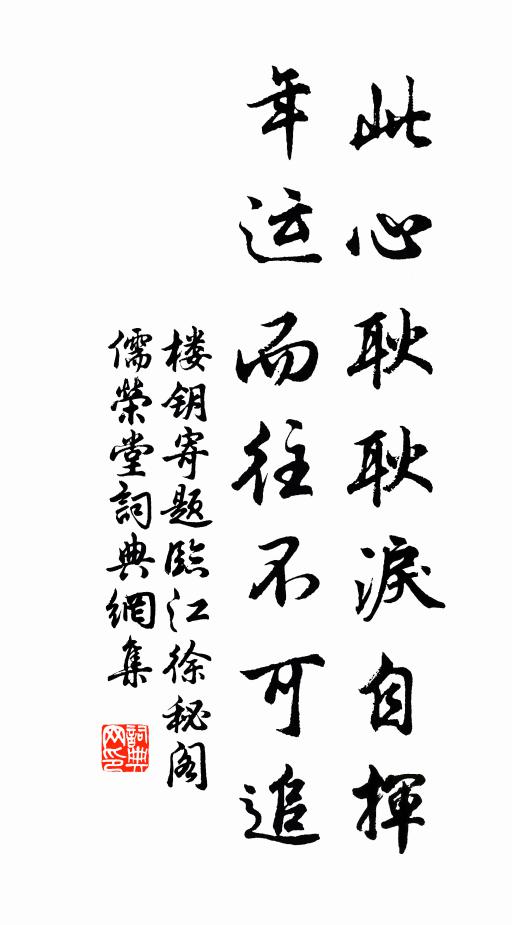 此心耿耿淚自揮
年运而往不可追
楼钥寄题臨江徐秘阁
儒榮堂詞典網集
詞典
网印